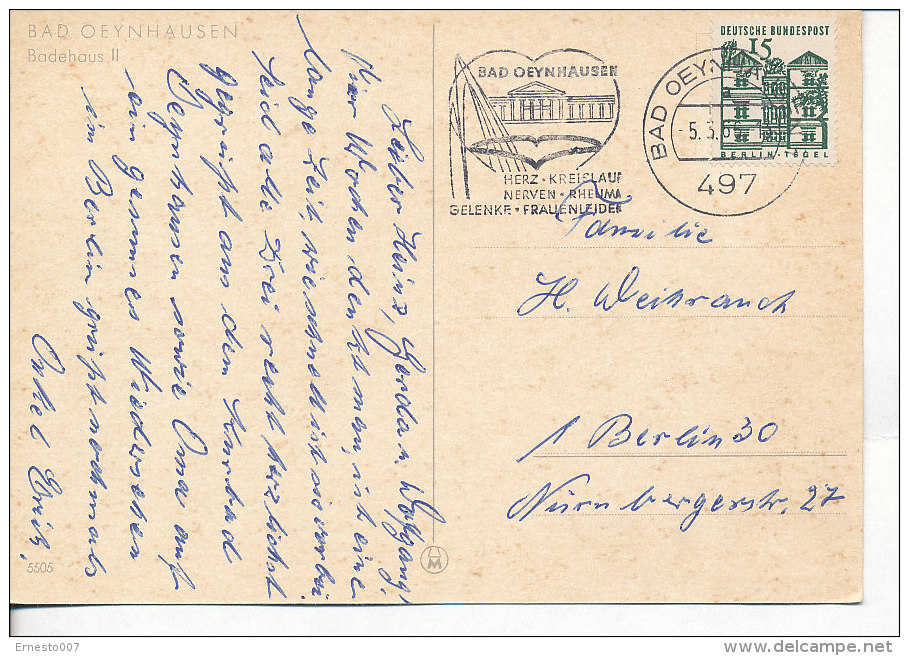 BAD OEYNHAUSEN
Badehaus II
Lieber Heinz, Gerda u. Wolfgang!
Vier Wochen denkt man, ist eine
lange Zeit, wie schnell ist sie vorbei.
Seid alle Drei recht herzlichst
gegrüßt aus dem Kurbad
Oeynhausen sowie Oma auf
ein gesundes Wiedersehen
in Berlin grüßt nochmals
Onkel Erich.
5505
BAD OEYNHAUSEN
HERZ · KREISLAUF
NERVEN · RHEUMA
GELENKE · FRAUENLEIDEN
BAD OEYNHA
a
-5.3.6
497
DEUTSCHE BUNDESPOST
15
BERLIN-TEGEL
Familie
H. Weihrauch
1 Berlin 30
Nürnbergerstr. 27
Ernesto007
delcampe.net